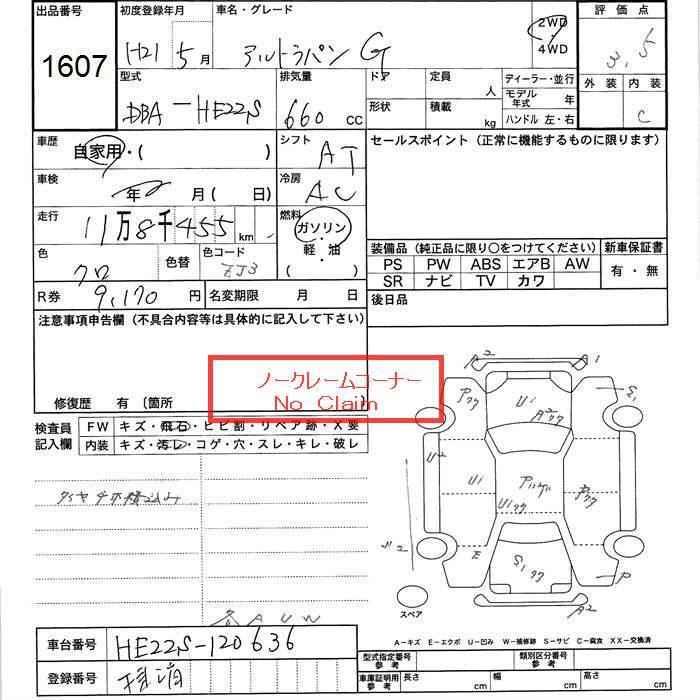 出品番号
1607
初度登録年月
H21 5月
車名・グレード
アルトラパン G
2WD
4WD
評価点
3.5
外装 内装
C
型式
DBA-HE22S
排気量
660 cc
ドア
定員
人
形状
積載
kg
ディーラー・並行
モデル年式 年
ハンドル 左・右
車歴
自家用・( )
シフト
AT
セールスポイント (正常に機能するものに限ります)
車検
年 月( 日)
冷房
AC
走行
11万8千455km
燃料
ガソリン
軽・油
( )
色
クロ
色替
色コード
ZJ3
装備品 (純正品に限り○をつけてください)
新車保証書
PS PW ABS エアB AW
SR ナビ TV カワ
有・無
R券 9,170円
名変期限 月 日
後日品
注意事項申告欄 (不具合内容等は具体的に記入して下さい)
ノークレームコーナー
No Claim
修復歴 有 〔箇所
検査員
記入欄
FW キズ・飛石・ヒビ割・リペア跡・X要
内装 キズ・汚レ・コゲ・穴・スレ・キレ・破レ
A2
A1
S1
U1
U2
U1
E
P
A2
スペア
A-キズ E-エクボ U-凹み W-補修跡 S-サビ C-腐食 XX-交換済
車台番号 HE22S-120636
登録番号 抹消
型式指定番号
参考
類別区分番号
参考
車庫証明用
参考
長さ cm
幅 cm
高さ cm